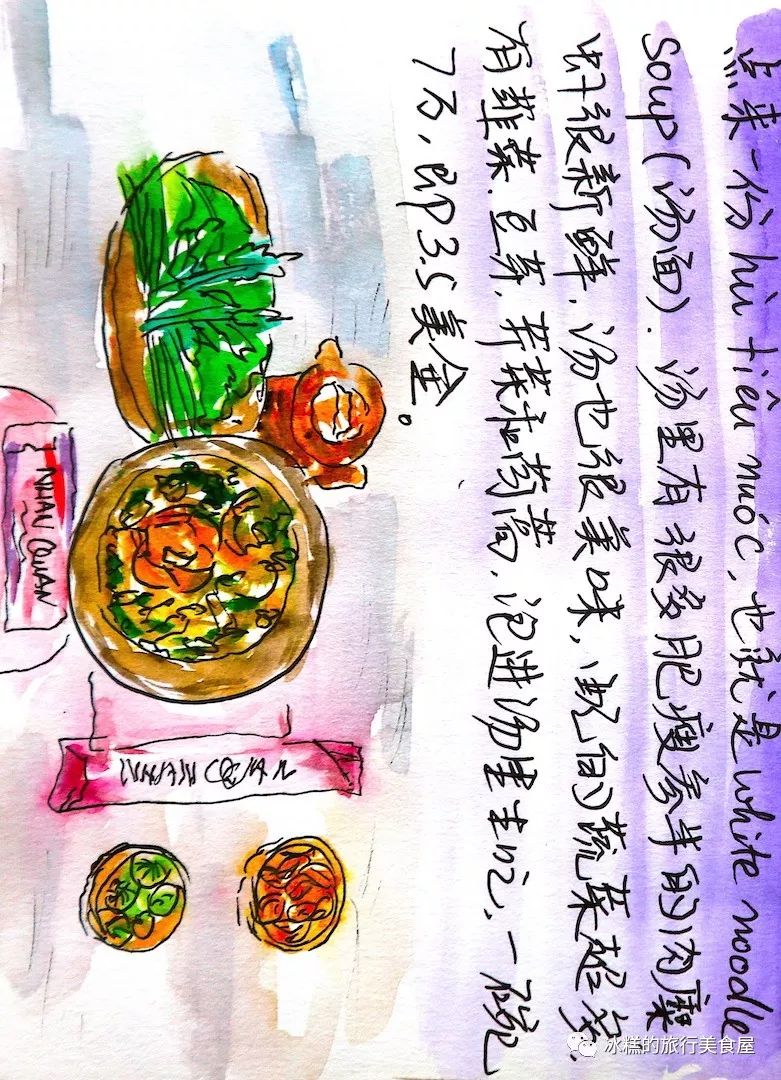 点来一份hủ tiêu nước,也就是white noodle
soup(汤面).汤里有很多肥瘦参半的肉糜
虾很新鲜,汤也很美味,配的蔬菜超多.
有韮菜.豆芽.芹菜和茼蒿,泡进汤里生吃,一碗
7万,即3.5美金。
NHAN QUAN
NHAN QUAN
冰糕的旅行美食屋